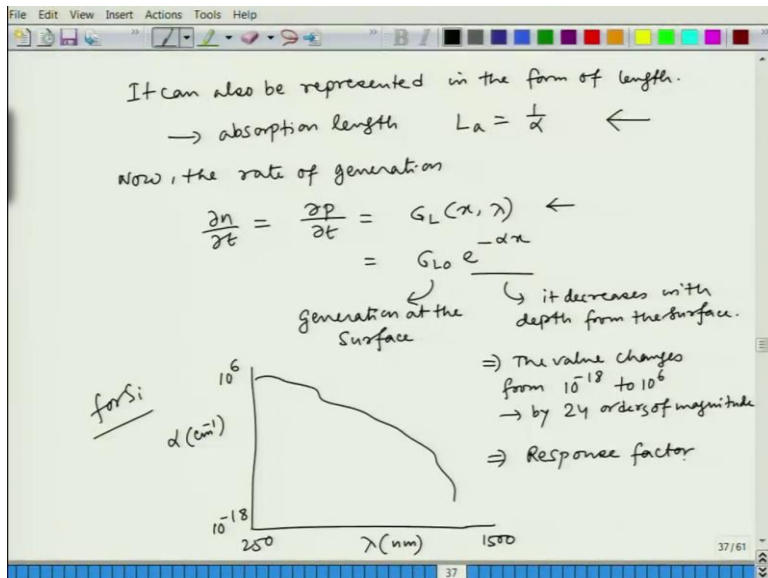 File Edit View Insert Actions Tools Help
It can also be represented in the form of length.
→ absorption length La = 1/α ←
Now, the rate of generation
∂n/∂t = ∂p/∂t = GL(x, λ) ←
= GL0 e^-αx
Generation at the surface
↳ it decreases with depth from the surface.
⇒ The value changes from 10^-18 to 10^6
→ by 24 orders of magnitude
⇒ Response factor
for Si
10^6
α (cm^-1)
10^-18
250 λ(nm) 1500
37/61
37